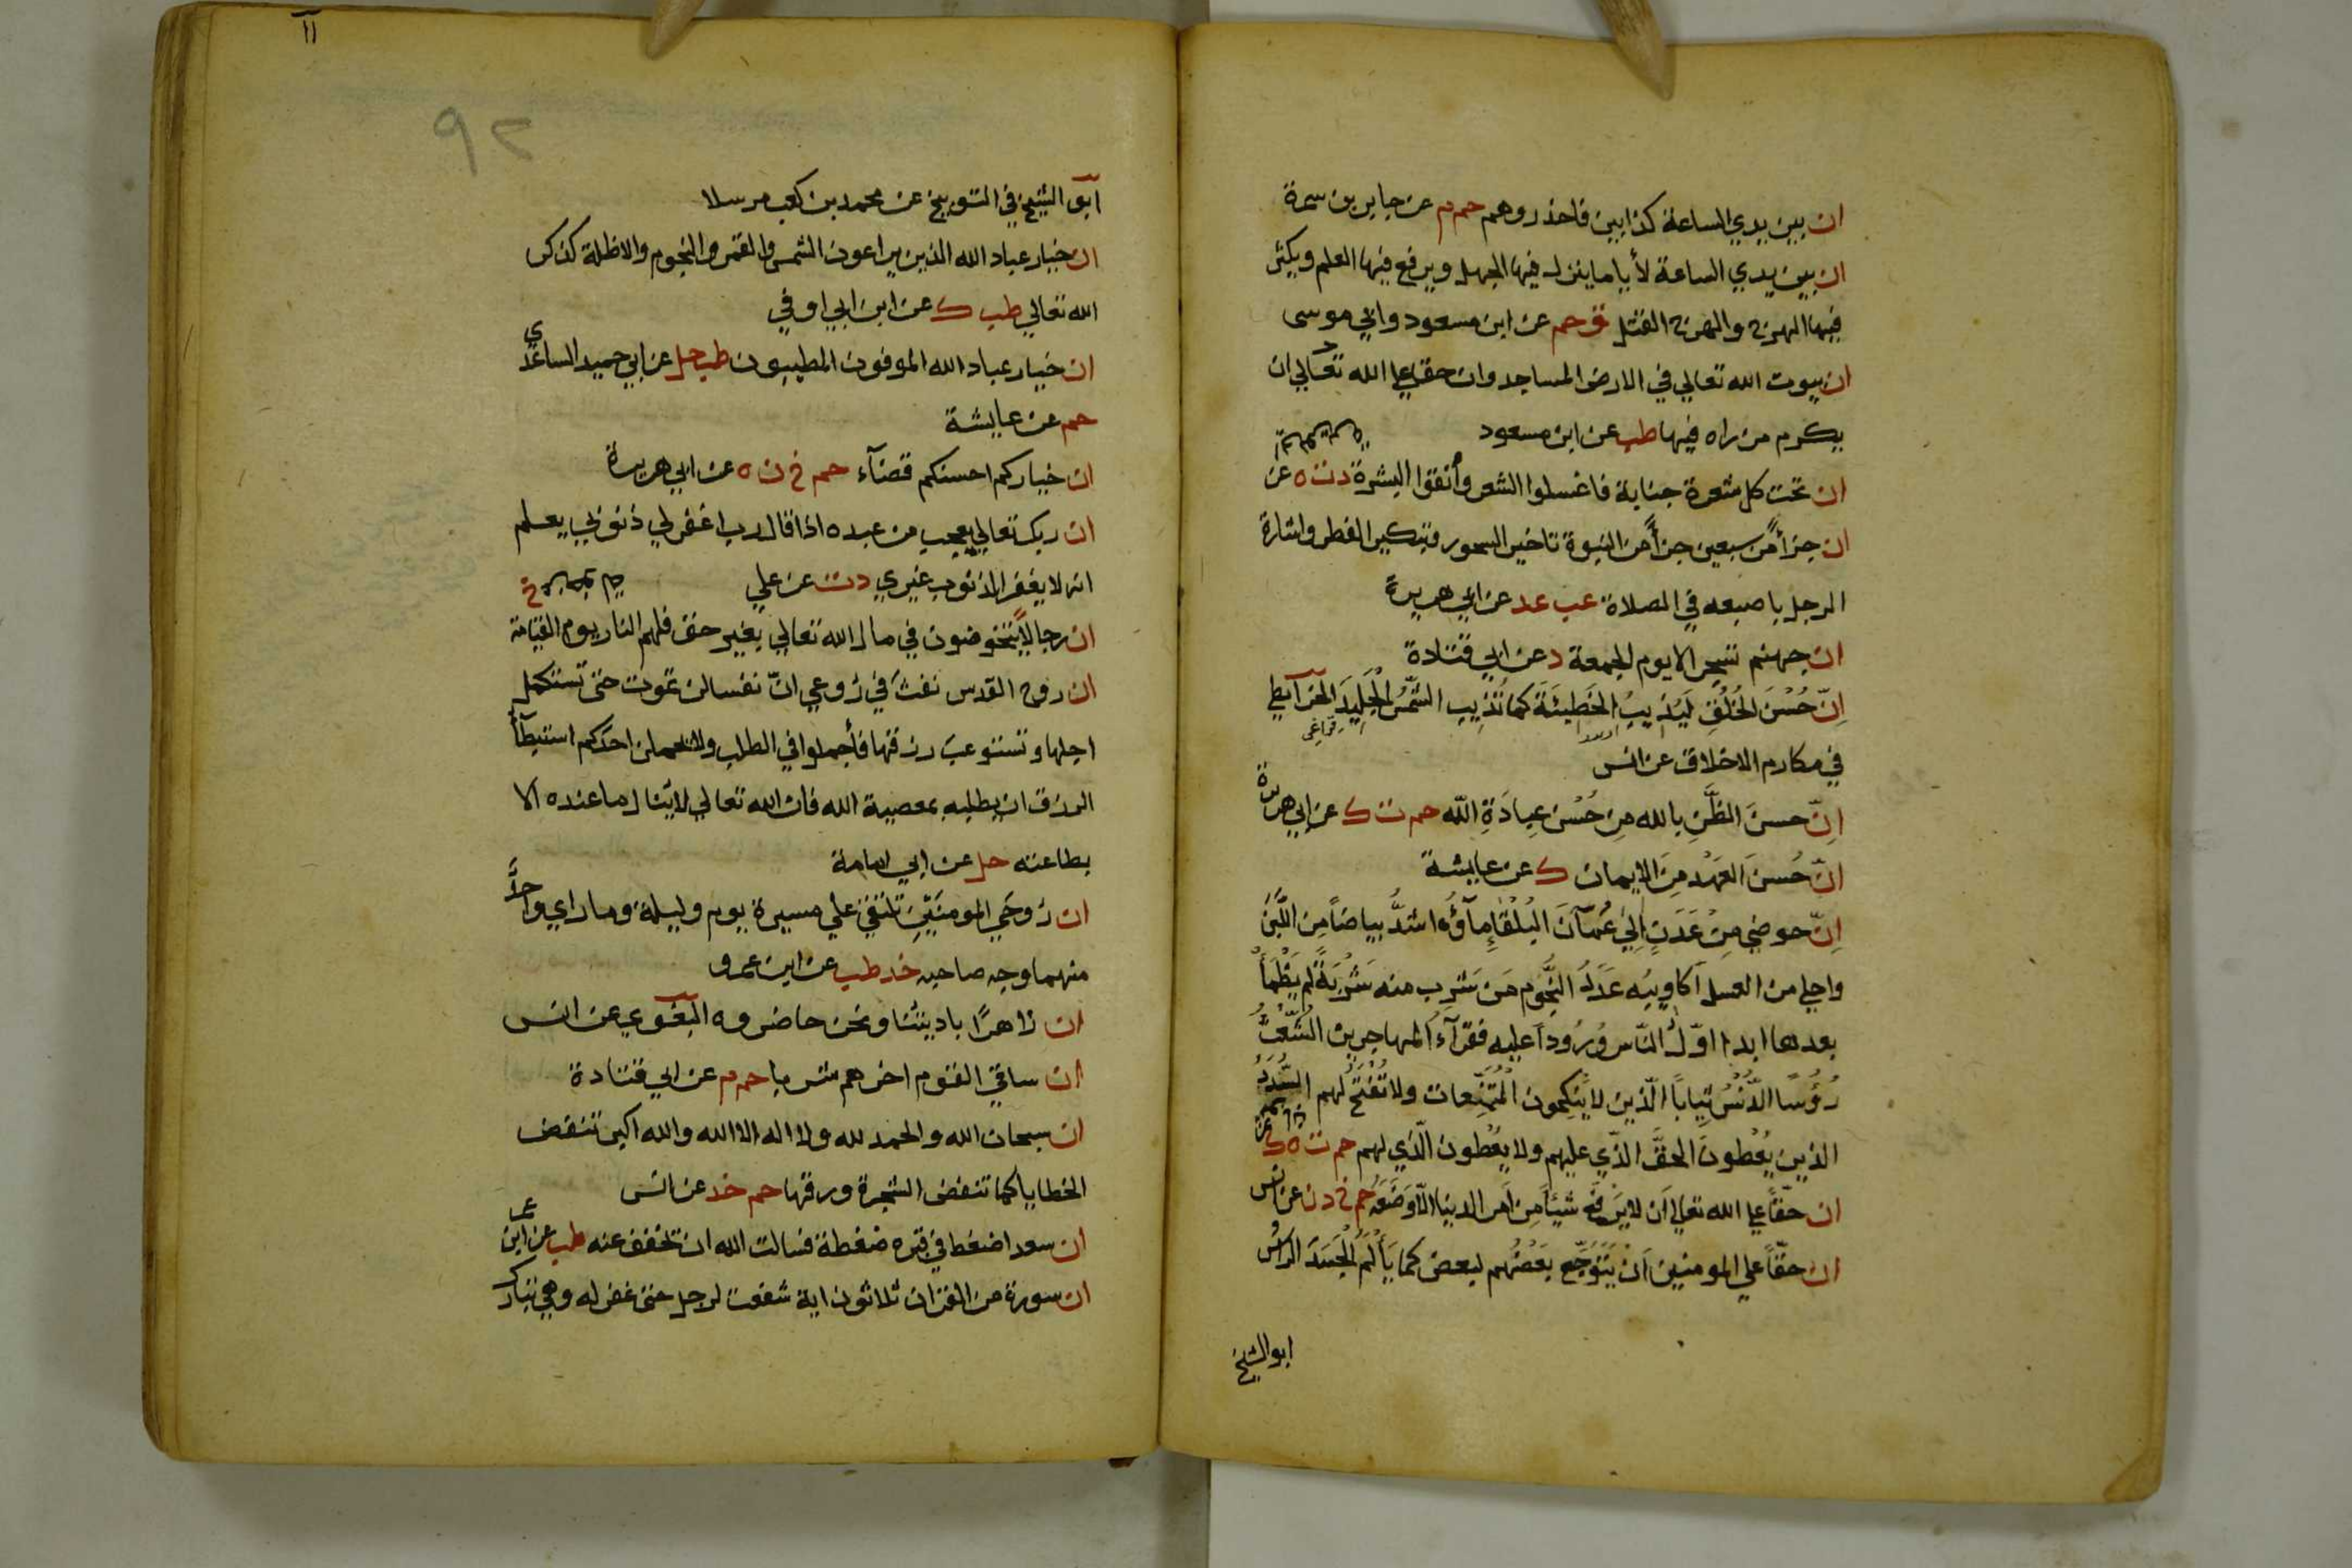 ان بين يدي الساعة كذابين فاحذروهم حم م عن جابر بن سمرة
ان بين يدي الساعة لأياما ينزل فيها الجهل ويرفع فيها العلم ويكثر
فيها الهرج والهرج القتل ق حم عن ابن مسعود وابي موسى
ان بيوت الله تعالي في الارض المساجد وان حقا علي الله تعالي ان
يكرم من زاه فيها طب عن ابن مسعود
ان تحت كل شعرة جنابة فاغسلوا الشعر وأنقوا البشرة د ت ه عن
ان جزأ من سبعين جزأ من النبوة تاخير السحور وتبكير الفطر واشارة
الرجل باصبعه في الصلاة عب عد عن ابي هريرة
ان جهنم تسجر الا يوم الجمعة د عن ابي قتادة
اِنّ حُسْنَ الخُلُقِ لَيُذِيبُ الخَطِيئَةَ كما تُذِيب الشَّمْسُ الجَلِيدَ الخرآيطي
في مكارم الاخلاق عن انس
اِنّ حسنَ الظَّنِ بالله مِن حُسْن عِبادَةِ اللّه حم ت ك عن ابي هريرة
انّ حُسنَ العَهْد مِنَ الايمان ك عن عايشة
اِنّ حوضي مِنْ عَدَنٍ اِلي عُمَآنَ البَلْقَإِ مآؤُه اشدُّ بياضاً مِن اللَّبَن
واحلي من العسل اَكاوِيبُه عَدَدُ النُّجُوم مَن شَرِب منه شَرْبَةً لم يَظْمَأْ
بعدها ابدا اوّلُ النّاس وُرُوداً عليه فقرآءُ المهاجرين الشُعْثُ
رُؤُسًا الدُّنْسُ ثِياباً الّذين لا يَنكِحون المُتَنَعّمات ولا تُفْتَحُ لهم السُّدَدُ
الذين يُعْطونَ الحقَّ الذّي عليهم ولا يعْطون الّذي لهم حم ت ه ك عن
ان حقّاً علي الله تعالي اَن لا يَرْفَع شيئاً مِن اَمر الدنيا الّا وَضَعَهُ حم خ د ن عن انس
ان حقّاً علي المومنين اَنْ يَتَوَجّع بَعْضُهم لبعض كما يَأْلَمُ الجَسَدَ الراسُ
ابو الشيخ
١١
٩٢
ابو الشيخ في التوبيخ عن محمد بن كعب مرسلا
ان خيار عباد الله الذين يراعون الشمس والقمر والنجوم والاظلة لذكر
الله تعالي طب ك عن ابن ابي اوفي
ان خيار عباد الله الموفون المطيبون طب حل عن ابي حميد الساعدي
حم عن عايشة
ان خياركم احسنكم قضآء حم خ ن ه عن ابي هريرة
ان ربك تعالي يعجب من عبده اذا قال رب اغفر لي ذنوبي يعلم
انه لا يغفر الذنوب غيري د ت عن علي
ان رجالا يتخوضون في مال الله تعالي بغير حق فلهم النار يوم القيامة خ
ان روح القدس نفث في رُوعي انّ نفسا لن تموت حتى تستكمل
اجلها وتستوعب رزقها فأجملوا في الطلب ولا يحملن احدكم استبطآأ
الرزق ان يطلبه بمعصية الله فان الله تعالي لا يُنال ما عنده الا
بطاعته حل عن ابي امامة
ان رُوحَي المومنَيْنِ تلتقي علي مسيرة يوم وليلة وما راي واحد
منهما وجه صاحبه خد طب عن ابن عمرو
ان زاهرًا باديتنا ونحن حاضروه البغوي عن انس
ان ساقي القوم اخرهم شربا حم م عن ابي قتادة
ان سبحان الله والحمد لله ولا اله الا الله والله اكبر تنفض
الخطايا كما تنفض الشجرة ورقها حم خد عن انس
ان سعدا ضغط في قبره ضغطة فسالت الله ان تخفف عنه طب عن ابن عمر
ان سورة من القران ثلاثون اية شفعت لرجل حتى غفر له وهي تبارك